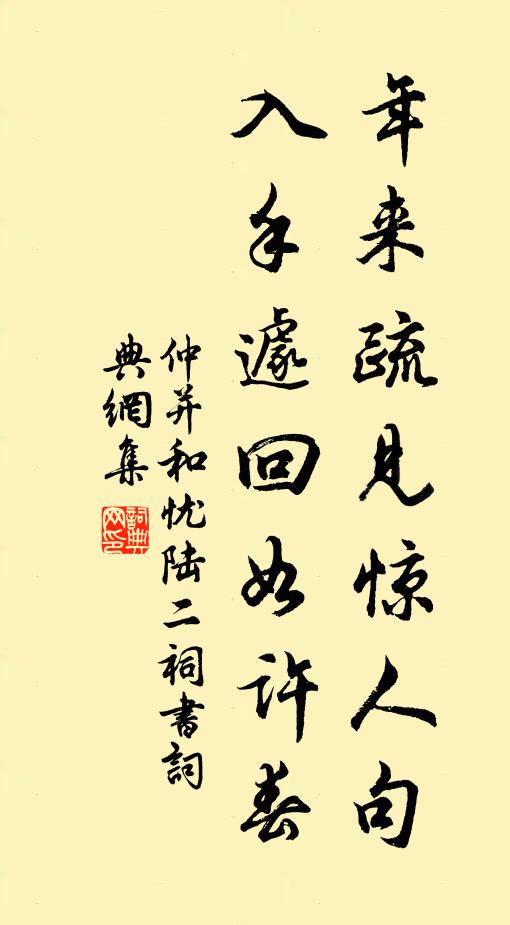 年来疏见惊人句
入手遽回如许春
仲并和忧陆二祠書詞
典網集
詞典
网印